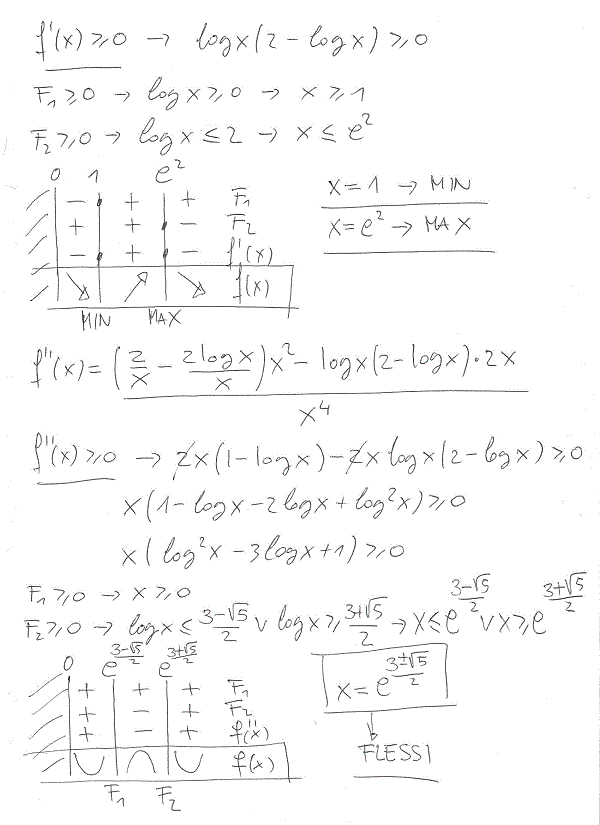 f'(x) ≥ 0 → log x (2 - log x) ≥ 0
F₁ ≥ 0 → log x ≥ 0 → x ≥ 1
F₂ ≥ 0 → log x ≤ 2 → x ≤ e²
0 1 e²
- + + F₁
+ + - F₂
- + - f'(x)
↘ ↗ ↘ f(x)
MIN MAX
x = 1 → MIN
x = e² → MAX
f''(x) = ((2/x - 2 log x/x) x² - log x (2 - log x) · 2x) / x⁴
f''(x) ≥ 0 → 2x (1 - log x) - 2x log x (2 - log x) ≥ 0
x (1 - log x - 2 log x + log² x) ≥ 0
x (log² x - 3 log x + 1) ≥ 0
F₁ ≥ 0 → x ≥ 0
F₂ ≥ 0 → log x ≤ (3-√5)/2 ∨ log x ≥ (3+√5)/2 → x ≤ e^((3-√5)/2) ∨ x ≥ e^((3+√5)/2)
0 e^((3-√5)/2) e^((3+√5)/2)
+ + + F₁
+ - + F₂
+ - + f''(x)
∪ ∩ ∪ f(x)
F₁ F₂
x = e^((3±√5)/2)
↓
FLESSI